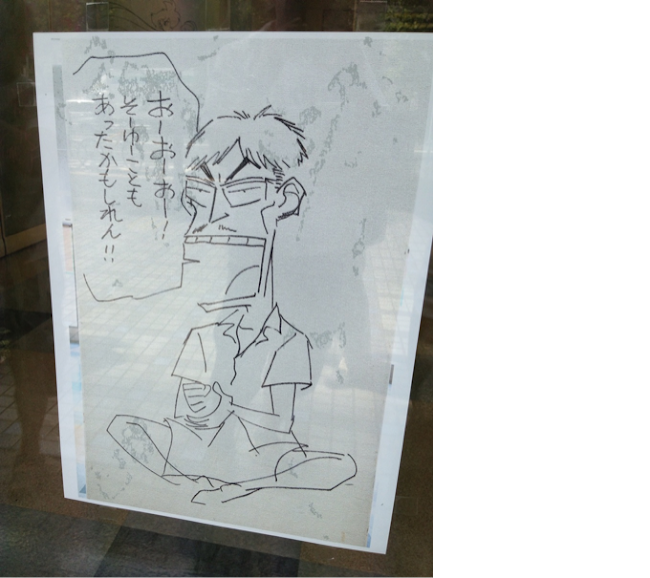 おーおーおー!!
そーゆーことも
あったかもしれん!!